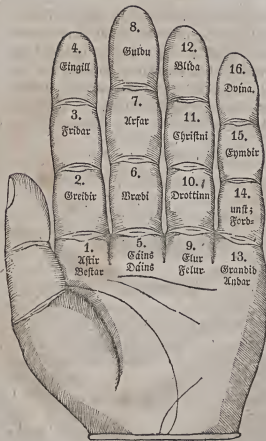 4.
Eingill
3.
Fridar
2.
Greidir
1.
Astir
Bestar
8.
Guldu
7.
Arfar
6.
Brædi
5.
Cains
Dains
12.
Blída
11.
Christni
10.
Drottinn
9.
Elur
Felur
16.
Dvína.
15.
Eymdir
14.
unst;
Ford-
13.
Grandid
Andar